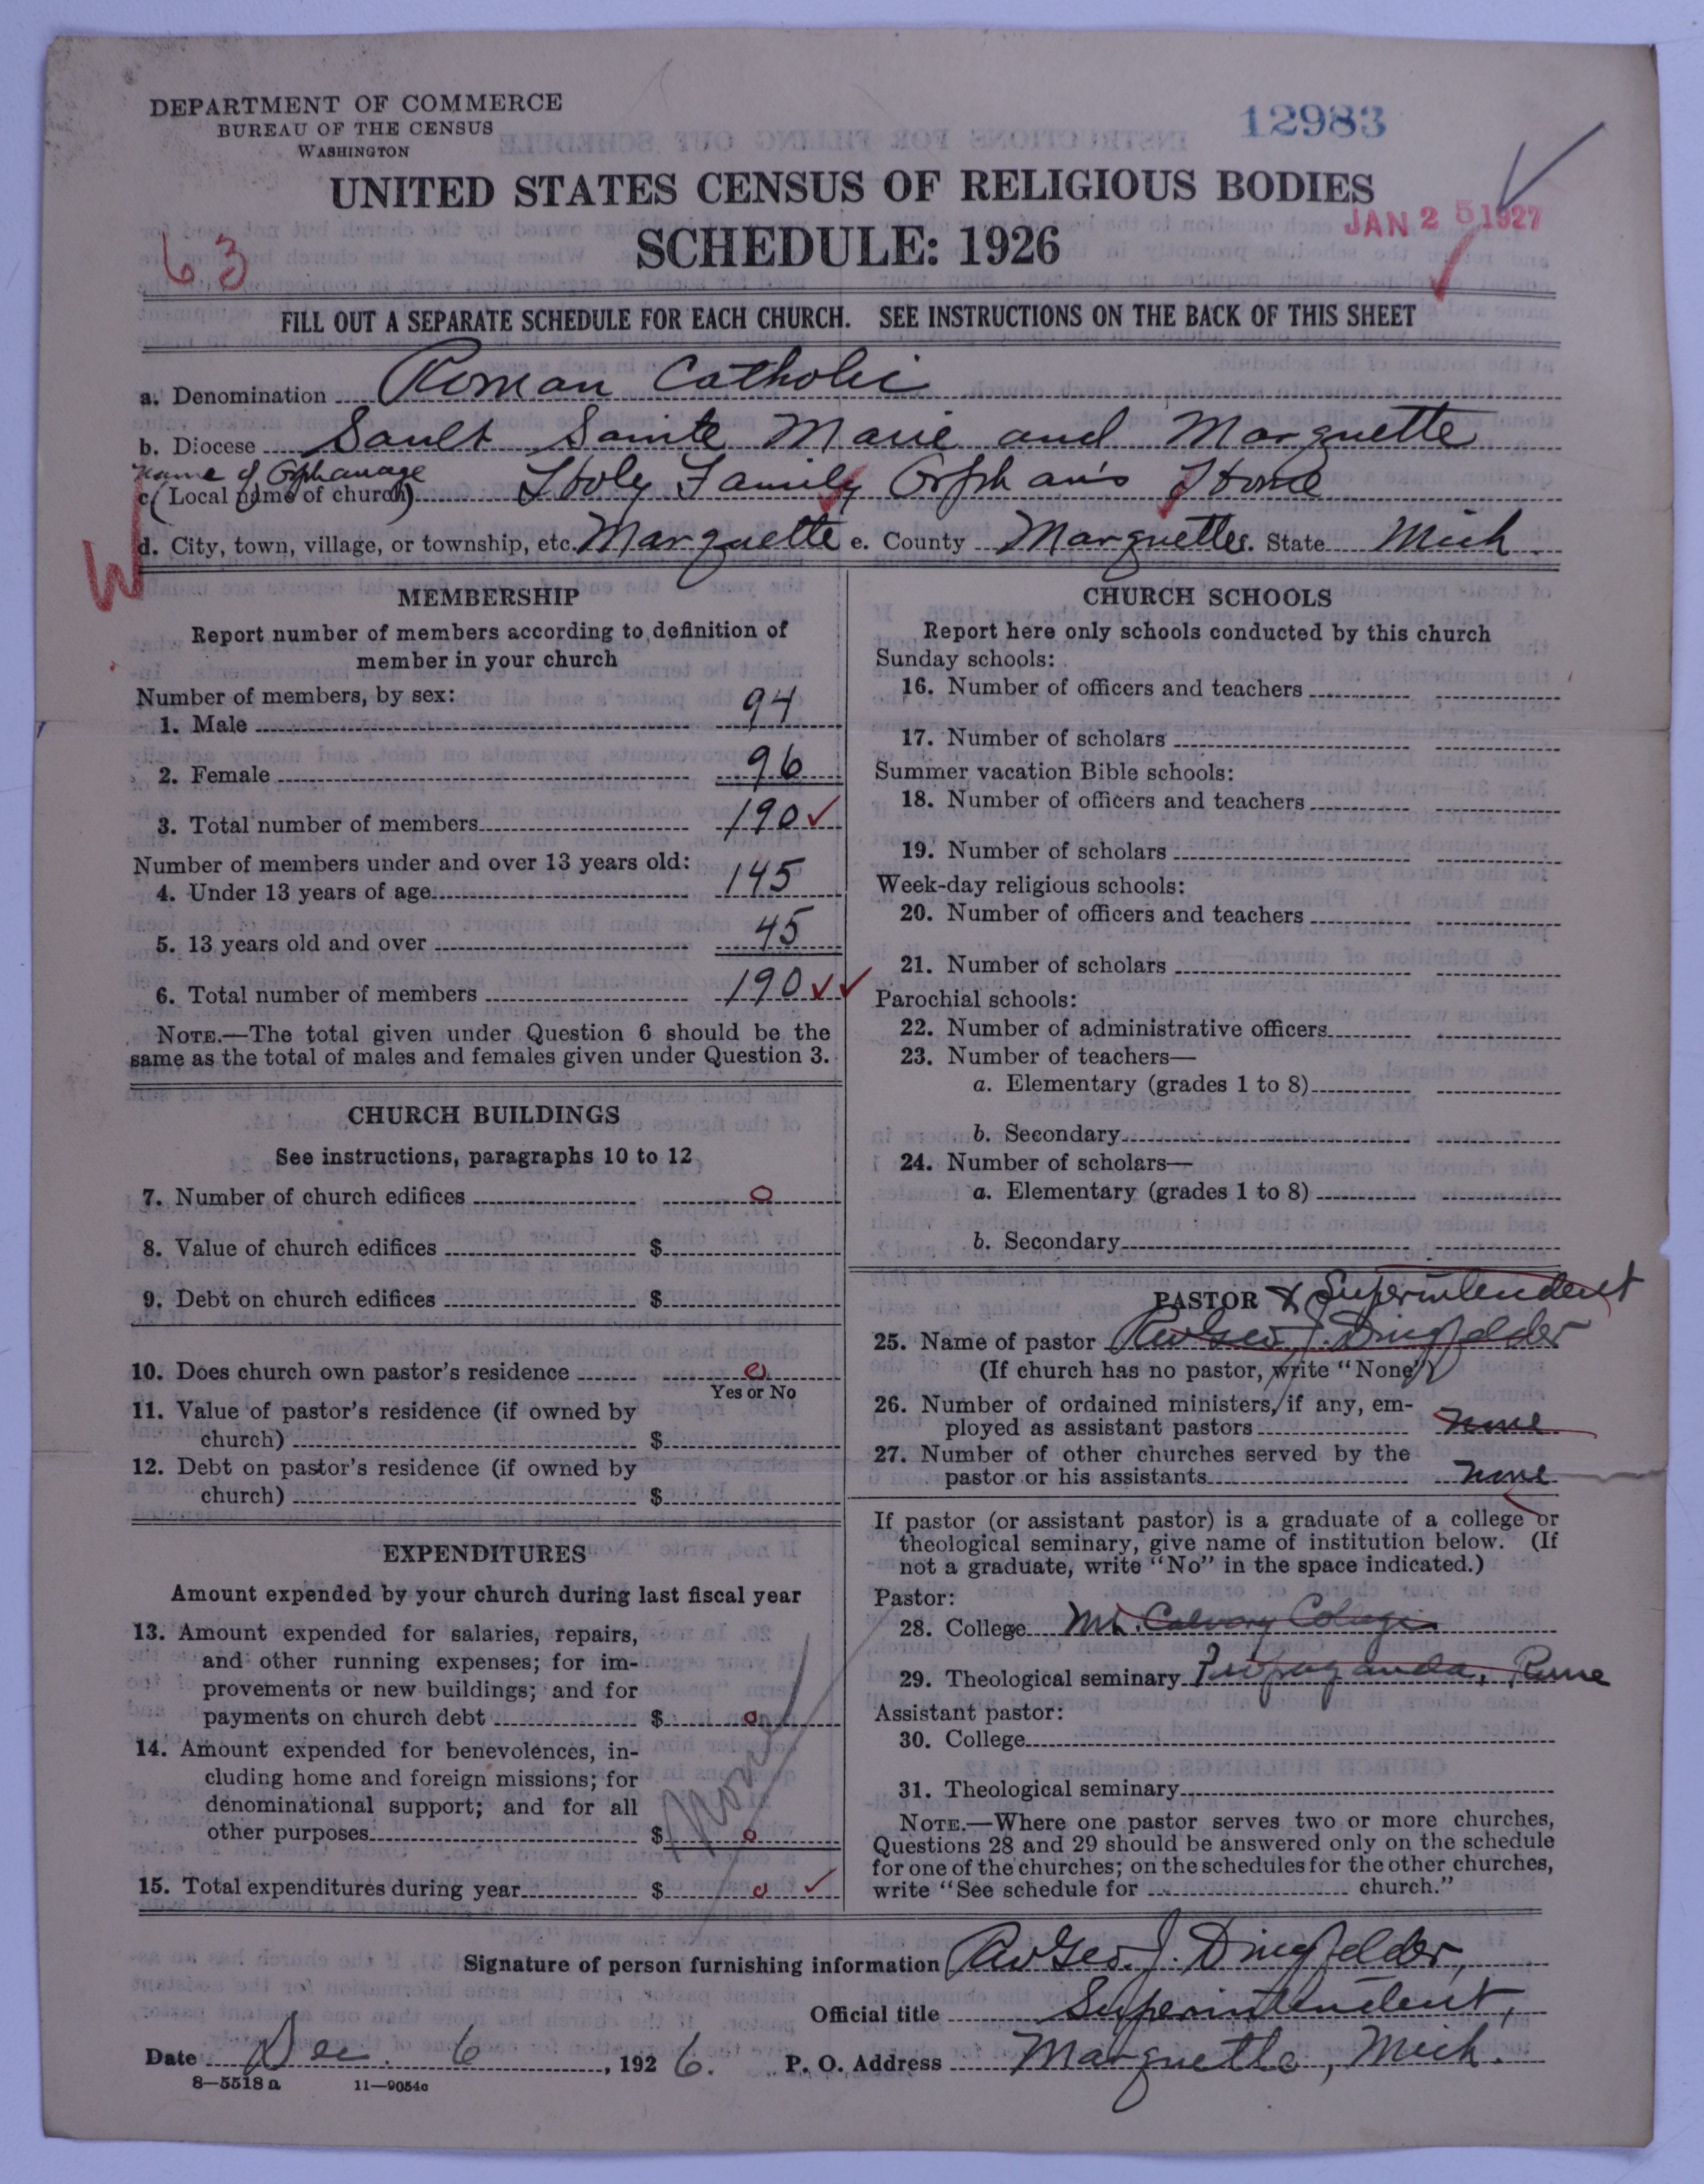 DEPARTMENT OF COMMERCE
BUREAU OF THE CENSUS
WASHINGTON
12983
UNITED STATES CENSUS OF RELIGIOUS BODIES
JAN 25 1927
SCHEDULE: 1926
63
FILL OUT A SEPARATE SCHEDULE FOR EACH CHURCH. SEE INSTRUCTIONS ON THE BACK OF THIS SHEET
a. Denomination Roman Catholic
b. Diocese Sault Sainte Marie and Marquette
Name of Orphanage
c. (Local name of church) Holy Family Orphan's Home
d. City, town, village, or township, etc. Marquette e. County Marquette f. State Mich.
W
MEMBERSHIP
Report number of members according to definition of
member in your church
Number of members, by sex:
1. Male 94
2. Female 96
3. Total number of members 190
Number of members under and over 13 years old:
4. Under 13 years of age 145
5. 13 years old and over 45
6. Total number of members 190
NOTE.—The total given under Question 6 should be the
same as the total of males and females given under Question 3.
CHURCH BUILDINGS
See instructions, paragraphs 10 to 12
7. Number of church edifices 0
8. Value of church edifices $
9. Debt on church edifices $
10. Does church own pastor's residence 0
Yes or No
11. Value of pastor's residence (if owned by
church) $
12. Debt on pastor's residence (if owned by
church) $
EXPENDITURES
Amount expended by your church during last fiscal year
13. Amount expended for salaries, repairs,
and other running expenses; for im-
provements or new buildings; and for
payments on church debt $ 0
14. Amount expended for benevolences, in-
cluding home and foreign missions; for
denominational support; and for all
other purposes $ 0
None
15. Total expenditures during year $ 0
CHURCH SCHOOLS
Report here only schools conducted by this church
Sunday schools:
16. Number of officers and teachers
17. Number of scholars
Summer vacation Bible schools:
18. Number of officers and teachers
19. Number of scholars
Week-day religious schools:
20. Number of officers and teachers
21. Number of scholars
Parochial schools:
22. Number of administrative officers
23. Number of teachers—
a. Elementary (grades 1 to 8)
b. Secondary
24. Number of scholars—
a. Elementary (grades 1 to 8)
b. Secondary
PASTOR & Superintendent
25. Name of pastor Rev Geo. J. Dingfelder
(If church has no pastor, write "None")
26. Number of ordained ministers, if any, em-
ployed as assistant pastors none
27. Number of other churches served by the
pastor or his assistants none
If pastor (or assistant pastor) is a graduate of a college or
theological seminary, give name of institution below. (If
not a graduate, write "No" in the space indicated.)
Pastor:
28. College Mt. Calvary College
29. Theological seminary Propaganda, Rome
Assistant pastor:
30. College
31. Theological seminary
NOTE.—Where one pastor serves two or more churches,
Questions 28 and 29 should be answered only on the schedule
for one of the churches; on the schedules for the other churches,
write "See schedule for church."
Signature of person furnishing information Rev Geo. J. Dingfelder,
Official title Superintendent,
Date Dec. 6, 1926. P. O. Address Marquette, Mich.
8—5518 a 11—9054c